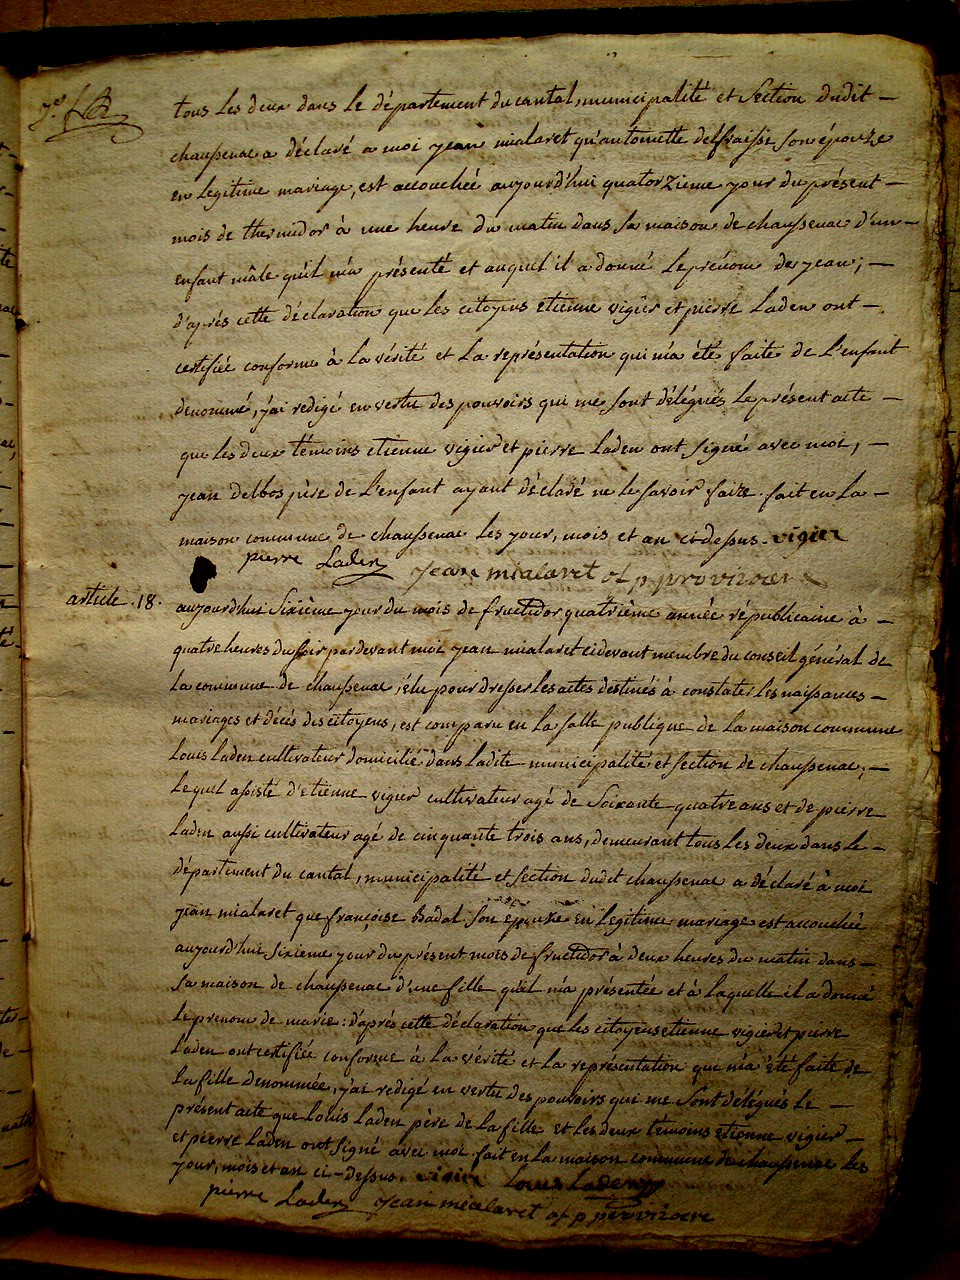 7.e
tous les deux dans le département du cantal, municipalité et section dudit —
chaussenac a déclaré a moi jean mialaret qu'antoinette delfraisse son épouze
en legitime mariage, est accouchée aujourd'hui quatorzieme jour du présent —
mois de thermidor à une heure du matin dans sa maison de chaussenac d'un —
enfant mâle qu'il m'a présenté et auquel il a donné le prénom de jean; —
d'après cette déclaration que les citoyens etienne vigier et pierre Laden ont —
certifiée conforme à la vérité et la représentation qui m'a été faite de l'enfant
denommé, j'ai redigé en vertu des pouvoirs qui me sont délégués le présent acte —
que les deux témoins etienne vigier et pierre Laden ont signé avec moi, —
jean delbos père de l'enfant ayant déclaré ne le savoir faire. fait en la —
maison commune de chaussenac les jour, mois et an ci-dessus. vigier
pierre Laden jean mialaret of p provizoere
article .18. aujourd'hui sixième jour du mois de fructidor quatrième année républicaine à —
quatre heures du soir par devant moi jean mialaret cidevant membre du conseil général de
la commune de chaussenac, élu pour dresser les actes destinés à constater les naissances —
mariages et décés des citoyens, est comparu en la salle publique de la maison commune
Louis Laden cultivateur domicilié dans ladite municipalité et section de chaussenac; —
lequel assisté d'etienne vigier cultivateur agé de soixante quatre ans et de pierre
Laden aussi cultivateur agé de cinquante trois ans, demeurant tous les deux dans le —
département du cantal, municipalité et section dudit chaussenac a déclaré à moi
jean mialaret que françoise Badal son epouze en legitime mariage est accouchée
aujourd'hui sixieme jour du présent mois de fructidor à deux heures du matin dans —
sa maison de chaussenac d'une fille qu'il m'a présentée et à laquelle il a donné
le prenom de marie: d'après cette déclaration que les citoyens etienne vigier et pierre
Laden ont certifiée conforme à la vérité et la représentation qui m'a été faite de
la fille denommée, j'ai redigé en vertu des pouvoirs qui me sont délégués le —
présent acte que Louis Laden père de la fille et les deux témoins etienne vigier —
et pierre Laden ont signé avec moi. fait en la maison commune de chaussenac les
jour, mois et an ci-dessus. vigier Louis Laden
pierre Laden jean mialaret of p provizoere